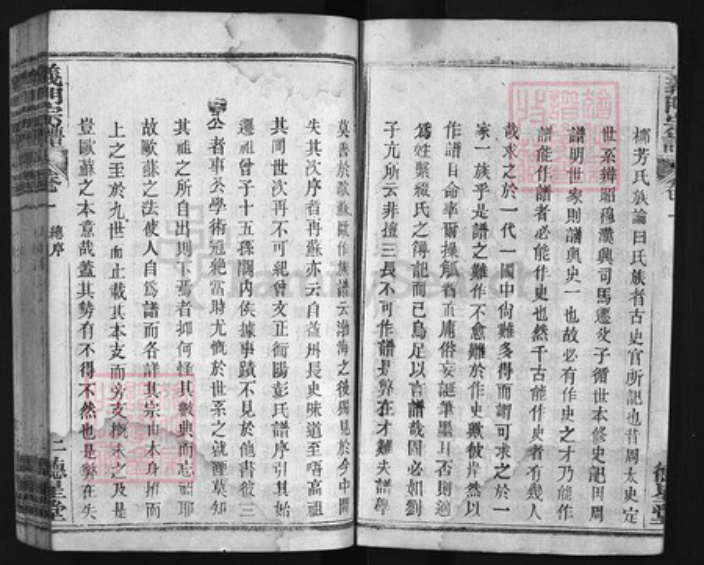 柳芳氏族論曰氏族者古史官所記也昔周太史定
世系辨昭穆漢興司馬遷父子循世本修史記因周
譜明世家則譜與史一也故必有作史之才乃能作
譜能作譜者必能作史也然千古能作史者有幾人
哉求之於一代一國中尚難多得而謂可求之於一
家一族乎是譜之難作不愈難於作史歟彼貿然以
作譜自命率爾操觚者直庸俗妄誕筆墨耳否則適
為姓纂綴氏之簿記而已烏足以言譜哉固必如劉
子亢所云非擅三長不可作譜是弊在才難夫譜學
莫善於歐蘇歐作族譜云渤海之後獨見於今中間
失其次序者再蘇亦云自益州長史味道至吾高祖
其間世次再不可紀曾文正衡陽彭氏譜序引其始
遷祖曾子十五孫關內侯據事蹟不見於他書彼三
公者事矣學術冠絕當時尤慨於世系之就湮莫知
其祖之所自出則下焉者抑何怪其數典而忘祖耶
故歐蘇之法使人自為譜而各詳其宗由本身推而
上之至於九世而止載其本支而旁支概未之及是
豈歐蘇之本意哉蓋其勢有不得不然也是弊在失
義門宗譜
卷首
總序
二
德星堂